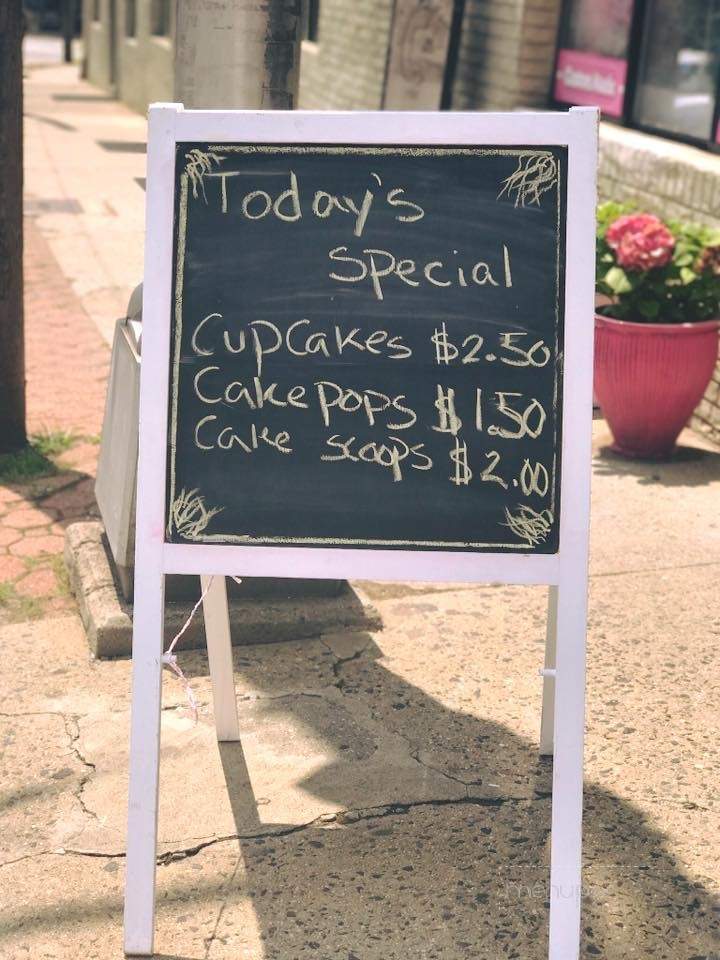 Today's
Special
Cupcakes $2.50
Cakepops $1.50
Cake scoops $2.00